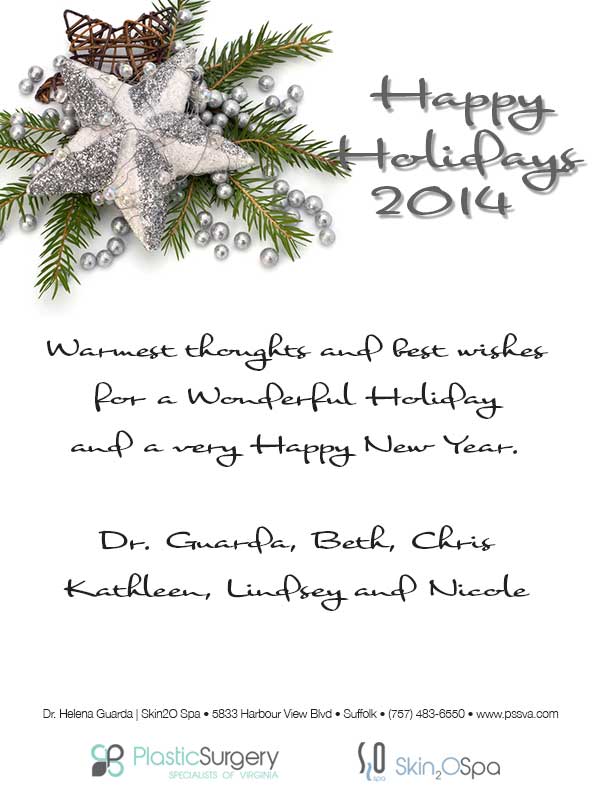 Happy
Holidays
2014
Warmest thoughts and best wishes
for a Wonderful Holiday
and a very Happy New Year.
Dr. Guarda, Beth, Chris
Kathleen, Lindsey and Nicole
Dr. Helena Guarda | Skin2O Spa • 5833 Harbour View Blvd • Suffolk • (757) 483-6550 • www.pssva.com
PlasticSurgery
SPECIALISTS OF VIRGINIA
S2O
spa
Skin2OSpa